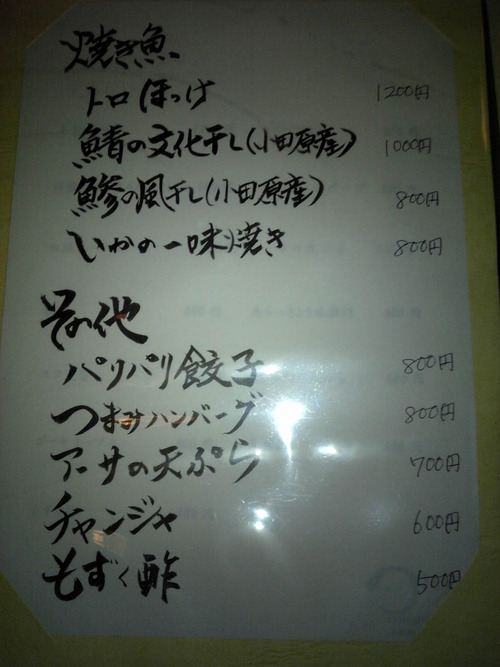 焼き魚
トロほっけ 1200円
鯖の文化干し(小田原産) 1000円
鯵の風干し(小田原産) 800円
いかの一味焼き 800円
その他
パリパリ餃子 800円
つまみハンバーグ 800円
アーサの天ぷら 700円
チャンジャ 600円
もずく酢 500円